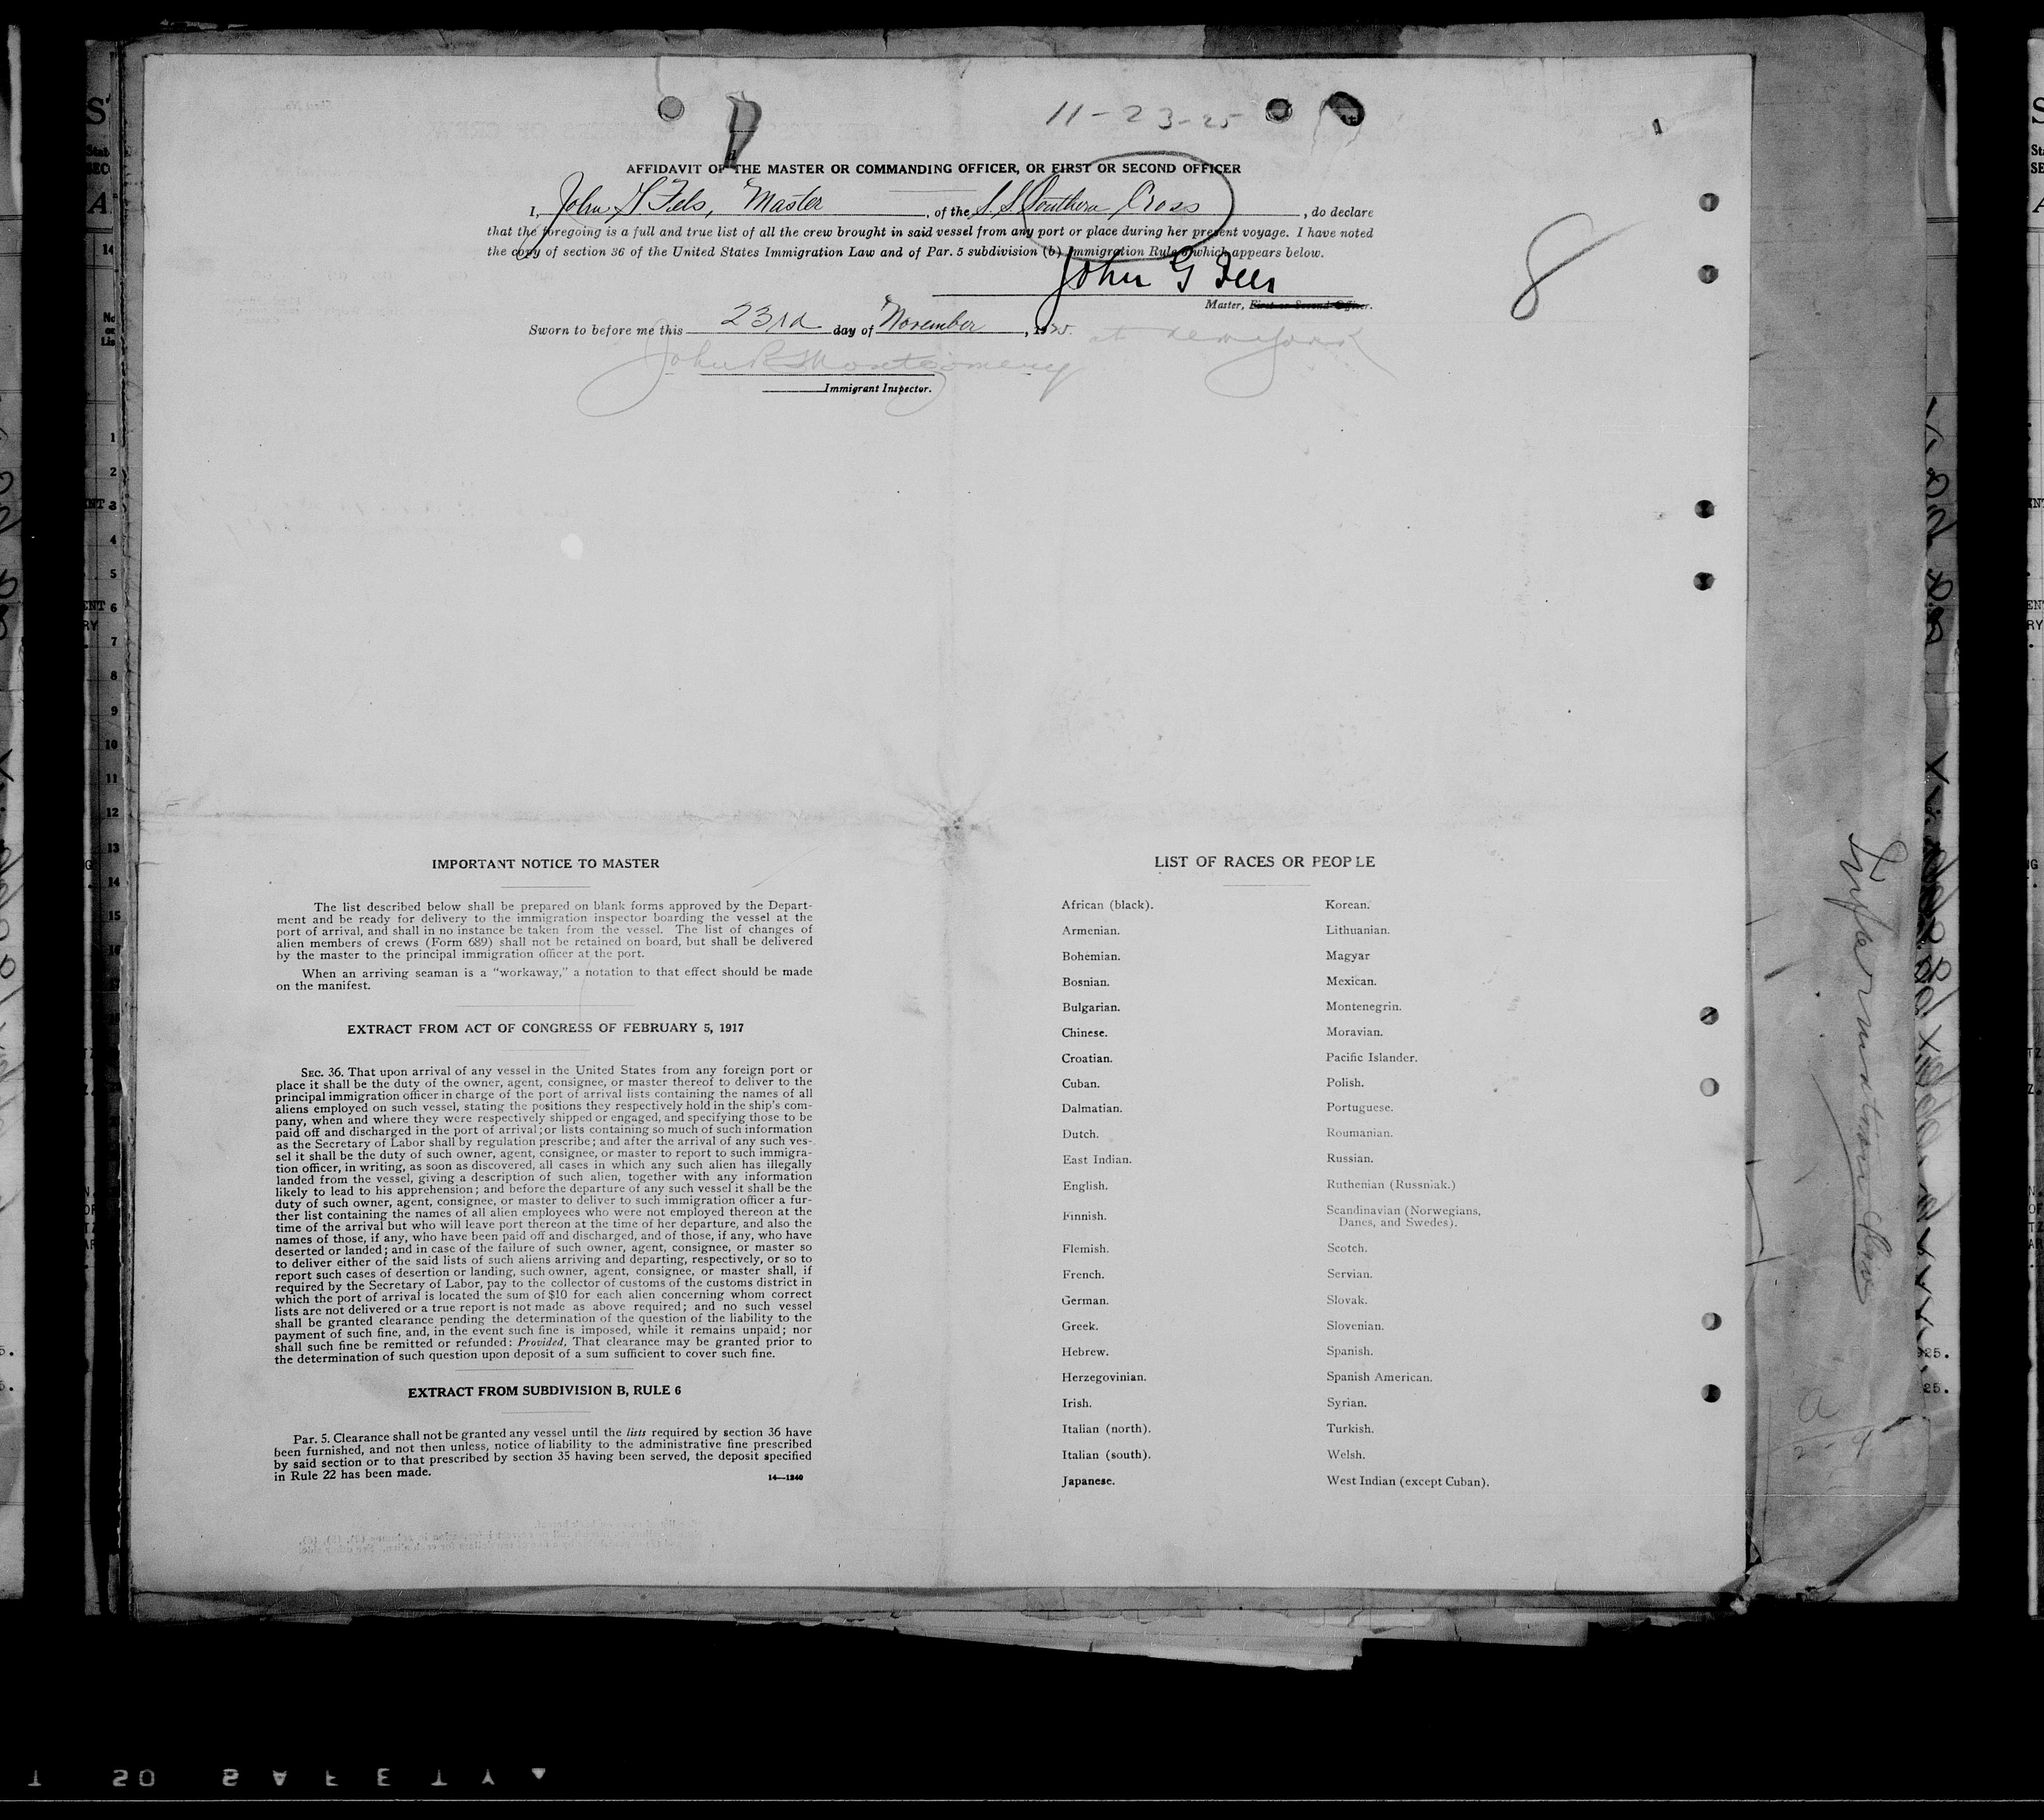 11-23-25
AFFIDAVIT OF THE MASTER OR COMMANDING OFFICER, OR FIRST OR SECOND OFFICER
I, John G Fels, Master, of the S.S. Southern Cross, do declare
that the foregoing is a full and true list of all the crew brought in said vessel from any port or place during her present voyage. I have noted
the copy of section 36 of the United States Immigration Law and of Par. 5 subdivision (b) Immigration Rule 6 which appears below.
John G Fels
Master, First or Second Officer.
8
Sworn to before me this 23rd day of November, 1925. at New York
John R Montgomery
Immigrant Inspector.
IMPORTANT NOTICE TO MASTER
The list described below shall be prepared on blank forms approved by the Depart-
ment and be ready for delivery to the immigration inspector boarding the vessel at the
port of arrival, and shall in no instance be taken from the vessel. The list of changes of
alien members of crews (Form 689) shall not be retained on board, but shall be delivered
by the master to the principal immigration officer at the port.
When an arriving seaman is a “workaway,” a notation to that effect should be made
on the manifest.
EXTRACT FROM ACT OF CONGRESS OF FEBRUARY 5, 1917
SEC. 36. That upon arrival of any vessel in the United States from any foreign port or
place it shall be the duty of the owner, agent, consignee, or master thereof to deliver to the
principal immigration officer in charge of the port of arrival lists containing the names of all
aliens employed on such vessel, stating the positions they respectively hold in the ship's com-
pany, when and where they were respectively shipped or engaged, and specifying those to be
paid off and discharged in the port of arrival; or lists containing so much of such information
as the Secretary of Labor shall by regulation prescribe; and after the arrival of any such ves-
sel it shall be the duty of such owner, agent, consignee, or master to report to such immigra-
tion officer, in writing, as soon as discovered, all cases in which any such alien has illegally
landed from the vessel, giving a description of such alien, together with any information
likely to lead to his apprehension; and before the departure of any such vessel it shall be the
duty of such owner, agent, consignee, or master to deliver to such immigration officer a fur-
ther list containing the names of all alien employees who were not employed thereon at the
time of the arrival but who will leave port thereon at the time of her departure, and also the
names of those, if any, who have been paid off and discharged, and of those, if any, who have
deserted or landed; and in case of the failure of such owner, agent, consignee, or master so
to deliver either of the said lists of such aliens arriving and departing, respectively, or so to
report such cases of desertion or landing, such owner, agent, consignee, or master shall, if
required by the Secretary of Labor, pay to the collector of customs of the customs district in
which the port of arrival is located the sum of $10 for each alien concerning whom correct
lists are not delivered or a true report is not made as above required; and no such vessel
shall be granted clearance pending the determination of the question of the liability to the
payment of such fine, and, in the event such fine is imposed, while it remains unpaid; nor
shall such fine be remitted or refunded: Provided, That clearance may be granted prior to
the determination of such question upon deposit of a sum sufficient to cover such fine.
EXTRACT FROM SUBDIVISION B, RULE 6
Par. 5. Clearance shall not be granted any vessel until the lists required by section 36 have
been furnished, and not then unless, notice of liability to the administrative fine prescribed
by said section or to that prescribed by section 35 having been served, the deposit specified
in Rule 22 has been made.
14—1240
LIST OF RACES OR PEOPLE
African (black).
Armenian.
Bohemian.
Bosnian.
Bulgarian.
Chinese.
Croatian.
Cuban.
Dalmatian.
Dutch.
East Indian.
English.
Finnish.
Flemish.
French.
German.
Greek.
Hebrew.
Herzegovinian.
Irish.
Italian (north).
Italian (south).
Japanese.
Korean.
Lithuanian.
Magyar
Mexican.
Montenegrin.
Moravian.
Pacific Islander.
Polish.
Portuguese.
Roumanian.
Russian.
Ruthenian (Russniak.)
Scandinavian (Norwegians,
Danes, and Swedes).
Scotch.
Servian.
Slovak.
Slovenian.
Spanish.
Spanish American.
Syrian.
Turkish.
Welsh.
West Indian (except Cuban).
Information
SAFETY